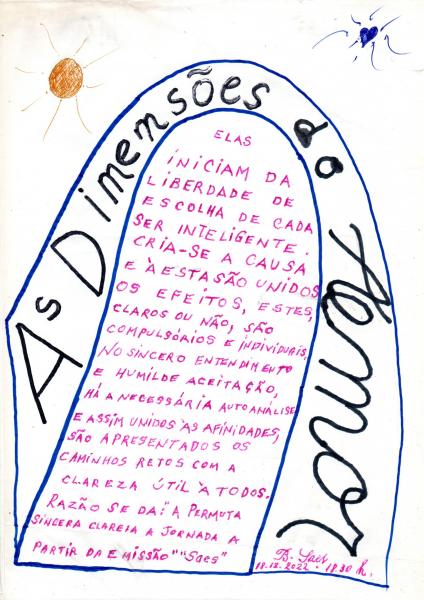 As Dimensões do Temor
ELAS
INICIAM DA
LIBERDADE DE
ESCOLHA DE CADA
SER INTELIGENTE.
CRIA-SE A CAUSA
E À ESTA SÃO UNIDOS
OS EFEITOS, ESTES,
CLAROS OU NÃO, SÃO
COMPULSÓRIOS E INDIVIDUAIS.
NO SINCERO ENTENDIMENTO
E HUMILDE ACEITAÇÃO,
HÁ A NECESSÁRIA AUTOANÁLISE
E ASSIM UNIDOS ÀS AFINIDADES,
SÃO APRESENTADOS OS
CAMINHOS RETOS COM A
CLAREZA ÚTIL À TODOS.
RAZÃO SE DÁ: A PERMUTA
SINCERA CLAREIA A JORNADA A
PARTIR DA EMISSÃO" "Saes"
B. Saes
18.12.2022 - 1830 h.